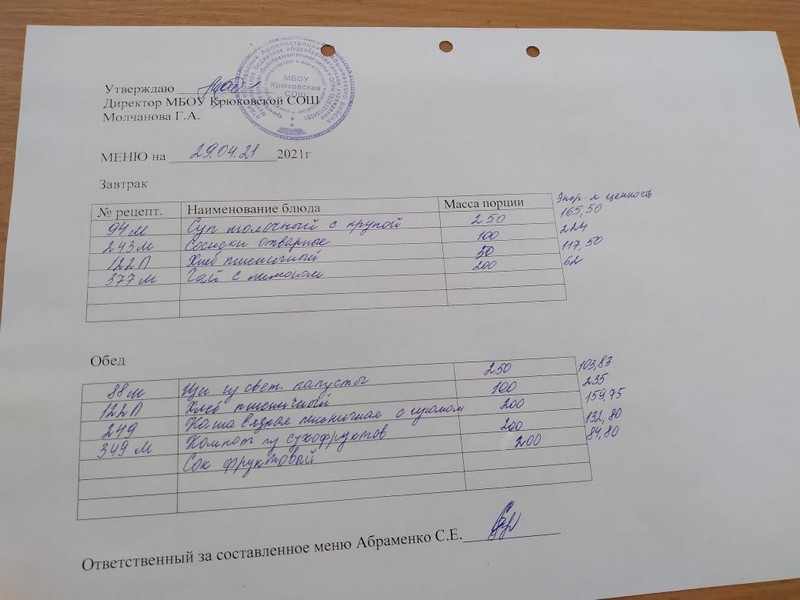 Утверждаю
Директор МБОУ Крюковской СОШ
Молчанова Г.А.
МБОУ
Крюковская
СОШ
МЕНЮ на 29.04.21 2021г
Завтрак
№ рецепт. Наименование блюда Масса порции Энер-я ценность
94м Суп молочный с крупой 250 165,50
243м Сосиски отварные 100 224
122П Хлеб пшеничный 50 117,50
377м Чай с лимоном 200 62
Обед
88м Щи из свеж. капусты 250 103,83
122П Хлеб пшеничный 100 235
249 Каша вязкая пшеничная с изюмом 200 159,75
349м Компот из сухофруктов 200 132,80
Сок фруктовый 200 84,80
Ответственный за составленное меню Абраменко С.Е.